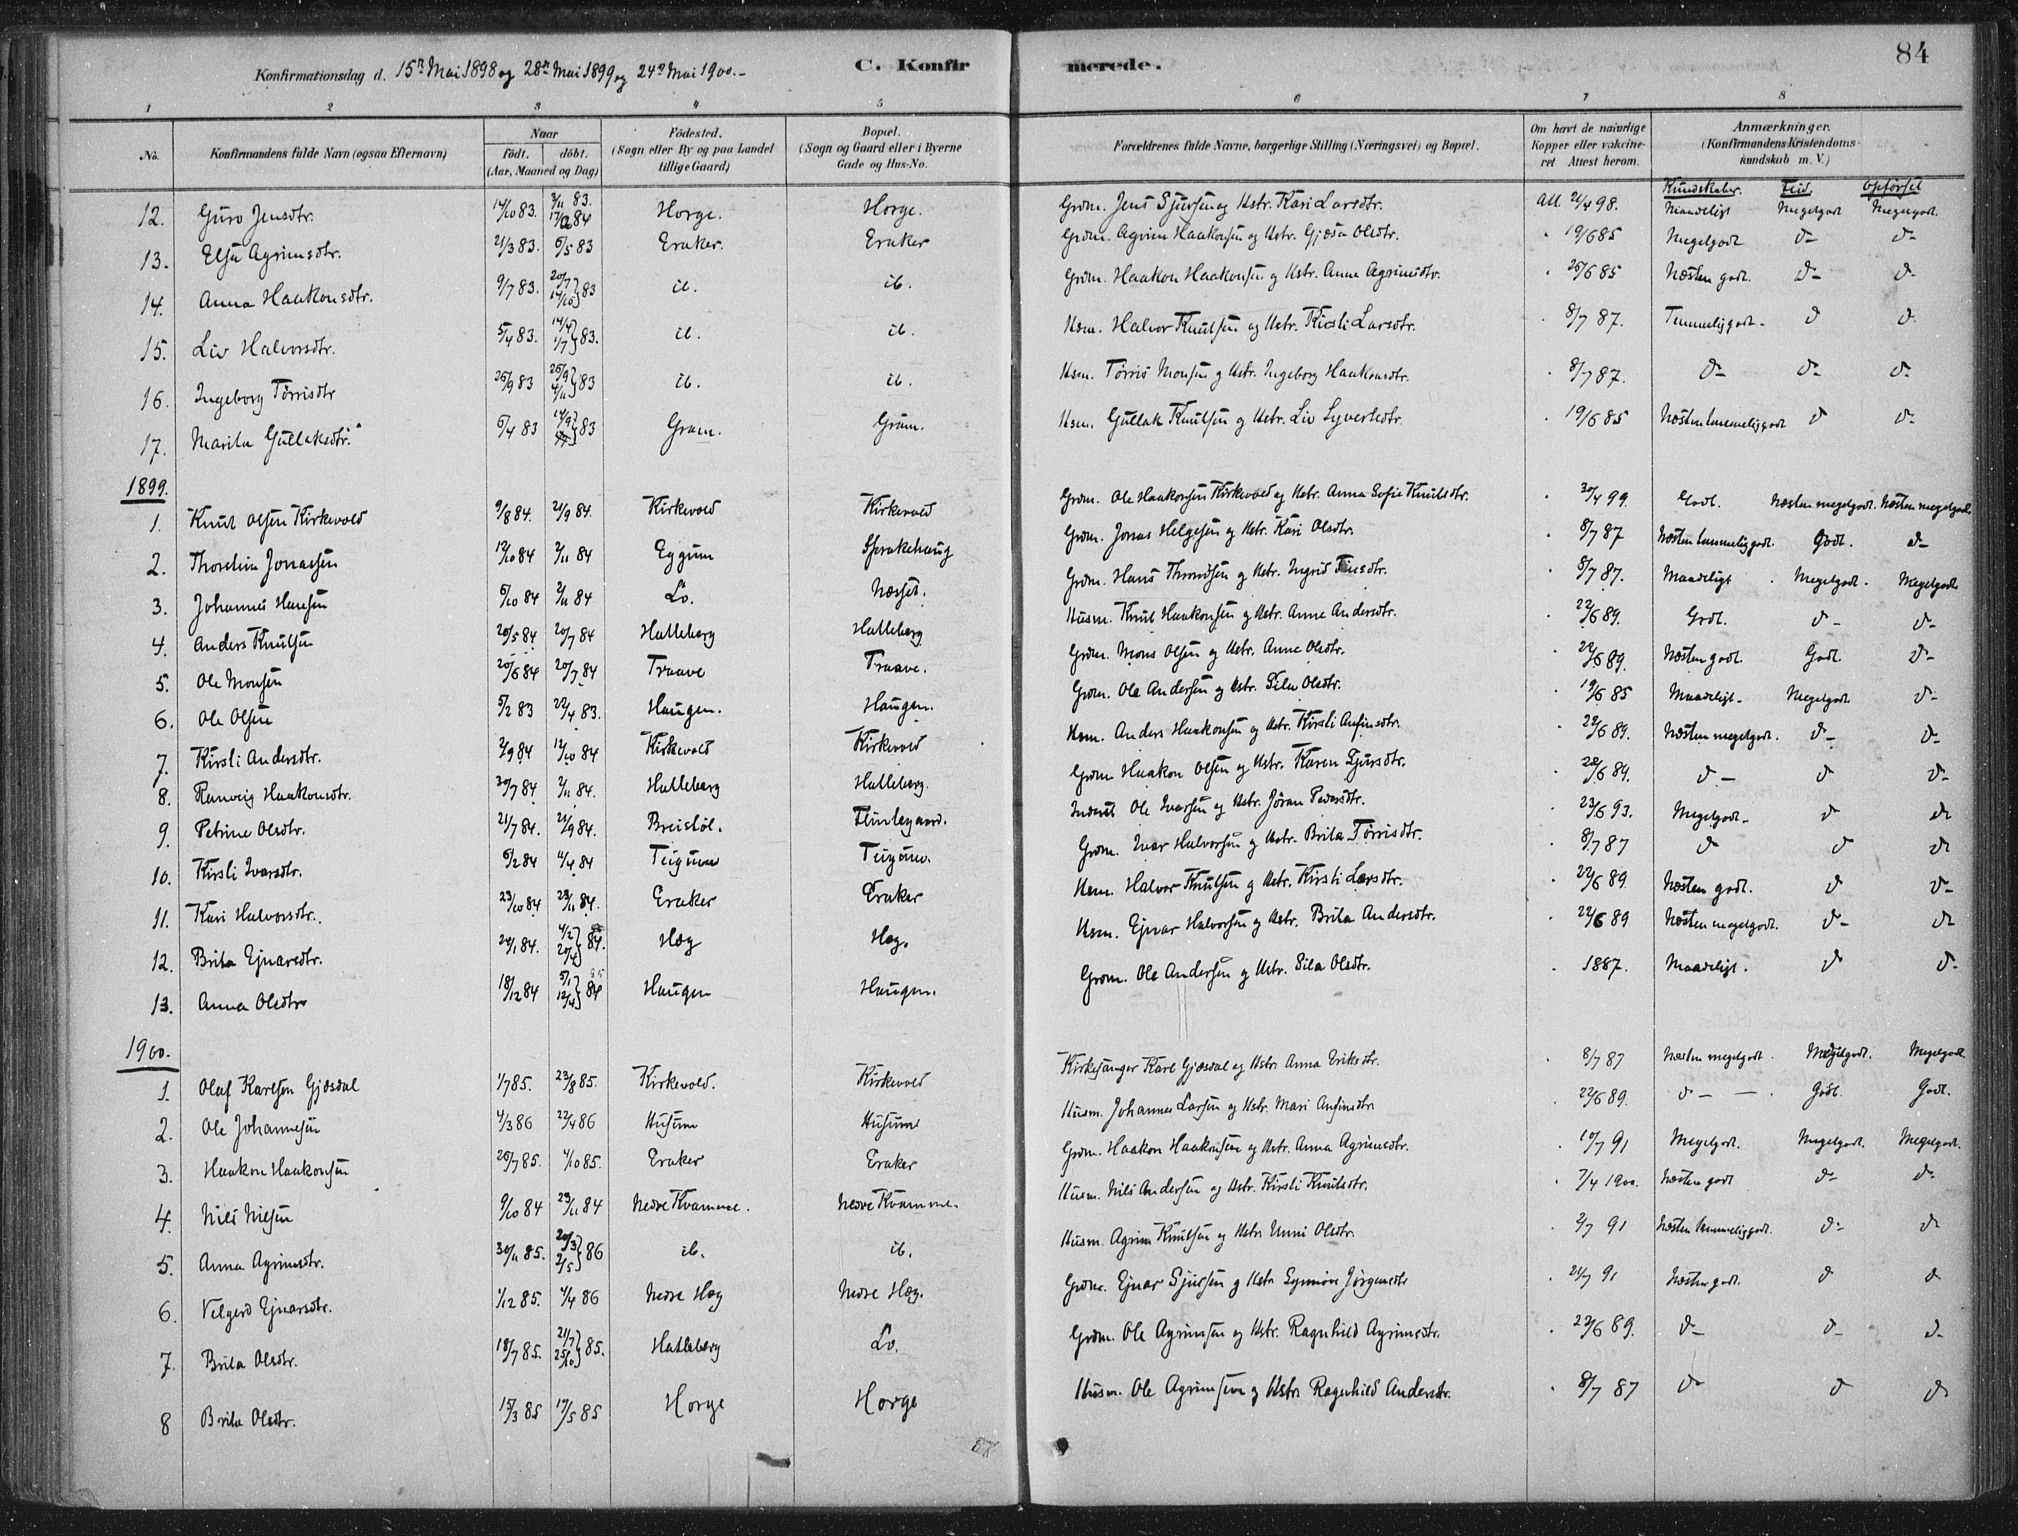 84
Konfirmationsdag d. 15de Mai 1898 og 28de Mai 1899 og 24de Mai 1900.-
C. Konfirmerede.
1 2 3 4 5 6 7 8
No. Konfirmandens fulde Navn (ogsaa Efternavn) Naar født. døbt. (Aar, Maaned og Dag) Fødested. (Sogn eller By og paa Landet tillige Gaard) Bopæl. (Sogn og Gaard eller i Byerne Gade og Hus-No. Forældrenes fulde Navne, borgerlige Stilling (Næringsvei) og Bopæl. Om havt de naturlige Kopper eller vakcineret Attest herom. Anmærkninger. (Konfirmandens Kristendomskundskab m. V.)
Kundskaber. Flid. Opførsel
12. Guro Jensdtr. 14/10 83. 3/11 83. 17/2 84 Horge. Horge. Grdm. Jens Sjursen og Hstr. Kari Larsdtr. Att. 21/4 98. Maadeligt Megetgodt Megetgodt.
13. Elsa Agrimsdtr. 21/3 83. 6/5 83 Eraker. Eraker Grdm. Agrim Haakonsen og Hstr. Gjøsa Olsdtr. " 19/6 85 Megetgodt d- d-
14. Anna Haakonsdtr. 9/7 83. 20/7 14/10 83 ib. ib. Grdm. Haakon Haakonsen og Hstr. Anna Agrimsdtr. " 26/6 85 Næsten godt. d- d-
15. Liv Halvorsdtr. 5/4 83. 14/4 1/7 83. ib. ib. Hsm. Halvor Knutsen og Hstr. Kirsti Larsdtr. " 8/7 87. Temmelig godt. d d
16. Ingeborg Tørrisdtr 26/9 83 26/9 4/11 83 ib. ib. Hsm. Tørris Monsen og Hstr. Ingeborg Haakonsdtr. " 8/7 87. d- d- d-
17. Marita Gullaksdtr. 6/4 83 14/9 83 Gram. Gram. Hsm. Gullak Knutsen og Hstr. Liv Syvertsdtr. " 19/6 85 Næsten temmelig godt d d-
1899.
1. Knut Olsen Kirkevold 9/8 84. 21/9 84. Kirkevold Kirkevold Grdm. Ole Haakonsen Kirkevold og Hstr. Anna Sofie Knutsdtr. " 30/4 99 Godt. Næsten megetgodt. Næsten megetgodt
2. Thorstein Jonassen 12/10 84 2/11 84 Eggum Sprakehaug Grdm. Jonas Helgesen og Hstr. Kari Olsdtr. " 8/7 87 Næsten temmelig godt. Godt. d-
3. Johannes Hansen 6/10 84 2/11 84 Lo. Næsset. Grdm. Hans Throndsen og Hstr. Ingrid Finsdtr. " 8/7 87. Maadeligt . Megetgodt. Megetgodt
4. Anders Knutsen 20/5 84 20/7 84 Halleberg Halleberg Husm. Knut Haakonsen og Hstr. Anne Andersdtr. " 22/6 89. Godt. d- d-
5. Ole Monsen 20/6 84 20/7 84 Traave Traave. Grdm. Mons Olsen og Hstr. Anne Olsdtr. " 22/6 89. Næsten godt. Godt. d-
6. Ole Olsen 5/2 83 22/4 83. Haugen. Haugen. Grdm. Ole Andersen og Hstr. Sila Olsdtr. " 19/6 85 Maadeligt- Megetgodt d-
7. Kirsti Andersdtr. 2/9 84 12/10 84 Kirkevold Kirkevold Hsm. Anders Haakonsen og Hstr. Kirsti Anfinsdtr. " 22/6 89. Næsten megetgodt. d- d-
8. Ranveig Haakonsdtr. 30/7 84 2/11 84. Halleberg Halleberg. Grdm. Haakon Olsen og Hstr. Karen Sjursdtr. " 22/6 89. d- d d-
9. Petrine Olsdtr. 21/7 84. 21/9 84. Breistøl. Klintegaard. Inderst Ole Ivarsen og Hstr. Jøran Pedersdtr. " 23/6 93. Megetgodt- d d
10. Kirsti Ivarsdtr. 6/2 84 4/4 84 Teigum Teigum. Grdm. Ivar Halvorsen og Hstr. Brita Tørrisdtr. " 8/7 87 d d d
11. Kari Halvorsdtr. 23/10 84 23/11 84. Eraker Eraker Hsm. Halvor Knutsen og Hstr. Kirsti Larsdtr. " 22/6 89. Næsten godt. d d-
12. Brita Ejnarsdtr. 20/1 84. 4/2 20/4 84. Hæg Hæg. Hsm. Ejnar Halvorsen og Hstr. Brita Andersdtr. " 22/6 89 Næsten megetgodt. d- d
13. Anna Olsdtr 18/12 84 5/1 85 12/4 84 Haugen Haugen. Grdm. Ole Andersen og Hstr. Sila Olsdtr. " 1887. Maadeligt. d d-
1900.
1. Olaf Karlsen Gjøsdal 1/7 85. 23/8 85. Kirkevold. Kirkevold Kirkesanger Karl Gjøsdal og Hstr. Anna Eriksdtr. " 8/7 87 Næsten megetgodt. Megetgodt. Megetgodt
2. Ole Johannesen 4/3 86 22/4 86 Husum Husum Husm. Johannes Larsen og Hstr. Mari Anfinsdtr. " 22/6 89. d- - . Godt. Godt.
3. Haakon Haakonsen 25/7 85. 4/10 85. Eraker Eraker Grdm. Haakon Haakonsen og Hstr. Anna Agrimsdtr. " 10/7 91 Megetgodt. Megetgodt. Megetgodt.
4. Nils Nilsen 9/10 84 23/11 84 Nedre Kvamme. Nedre Kvamme. Husm. Nils Andersen og Hstr. Kirsti Knutsdtr. " 7/4 1900. Næsten godt d- d-
5. Anna Agrimsdtr. 30/11 85. 20/3 2/5 86 ib. ib. Husm. Agrim Knutsen og Hstr. Unni Olsdtr. " 2/7 91 Næsten temmelig godt. d- d
6. Velgerd Ejnarsdtr. 1/12 85. 4/4 86 Nedre Hæg Nedre Hæg. Grdm. Ejnar Sjursen og Hstr. Synnøve Jørgensdtr " 21/7 91 Næsten godt. d d
7. Brita Olsdtr. 18/7 85. 21/7 25/10 85. Halleberg Lo. Grdm. Ole Agrimsen og Hstr. Ragnhild Agrimsdtr. " 22/6 89. d- d- d-
8 Brita Olsdtr. 15/3 85 17/5 85 Horge Horge Husm. Ole Agrimsen og Hstr. Ragnhild Andersdtr. " 8/7 87 d- d d